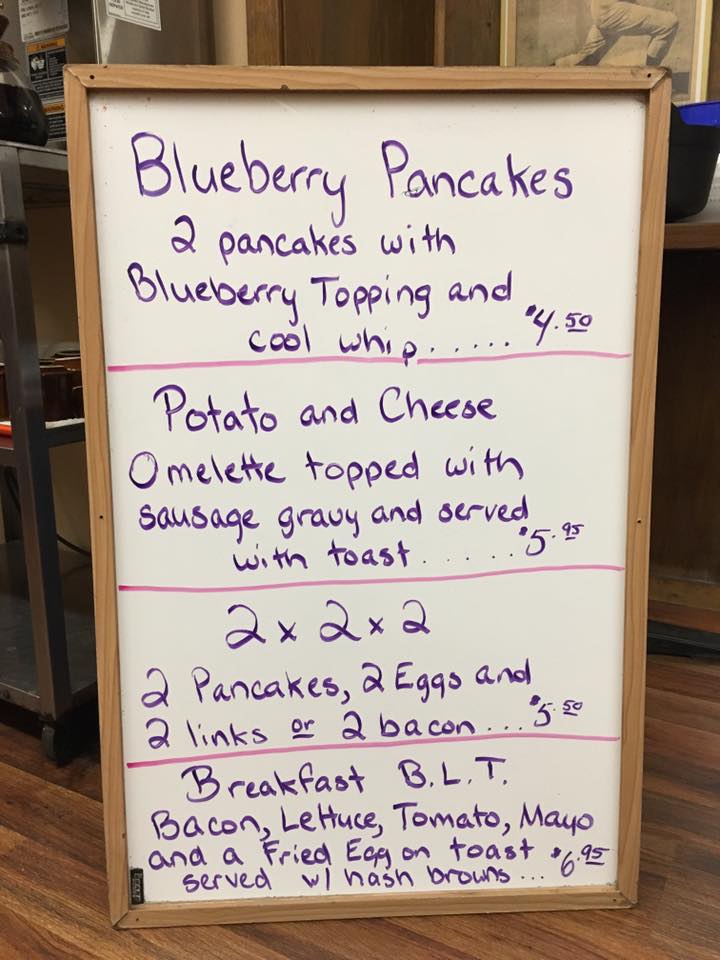 Blueberry Pancakes
2 pancakes with
Blueberry Topping and
cool whip...... $4.50
Potato and Cheese
Omelette topped with
sausage gravy and served
with toast...... $5.95
2 x 2 x 2
2 Pancakes, 2 Eggs and
2 links or 2 bacon... $5.50
Breakfast B.L.T.
Bacon, Lettuce, Tomato, Mayo
and a Fried Egg on toast $6.95
served w/ hash browns...